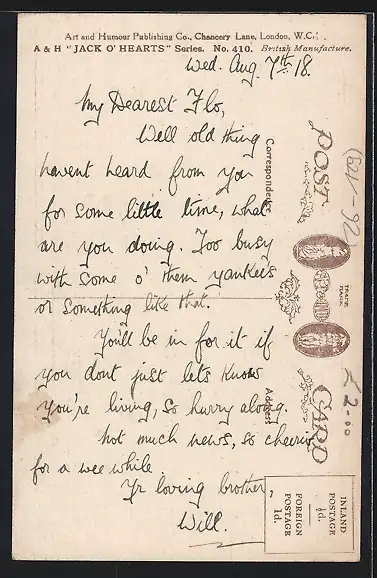 Art and Humour Publishing Co., Chancery Lane, London, W.C.
A & H "JACK O' HEARTS" Series. No. 410. British Manufacture.
Wed. Aug. 7th 18.
My Dearest Flo,
Well old thing
havent heard from you
for some little time, what
are you doing. Too busy
with some o' them yankees
or something like that.
You'll be in for it if
you dont just lets know
you're living, so hurry along.
Not much news, so cheerio
for a wee while
Yr loving brother,
Will.
Correspondence
Address
POST
CARD
TRADE MARK
(B21-92)
£2-00
INLAND
POSTAGE
½d.
FOREIGN
POSTAGE
1d.